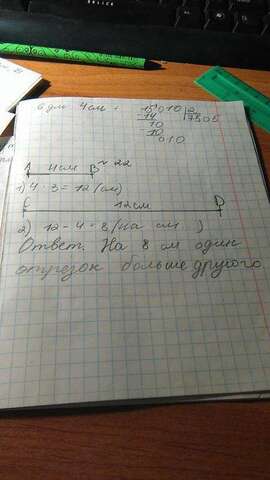 6 дм 4 см
15010 2
14 7505
10
10
010
A 4см B ~ 22
1) 4 · 3 = 12 (см)
C 12см D
2) 12 - 4 = 8 (на см )
Ответ. На 8 см один
отрезок больше другого